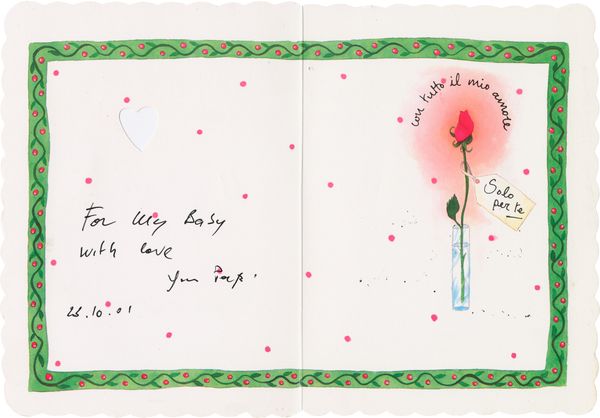 For My Baby
with love
10.01
con tutto il mio amore
Solo
per te